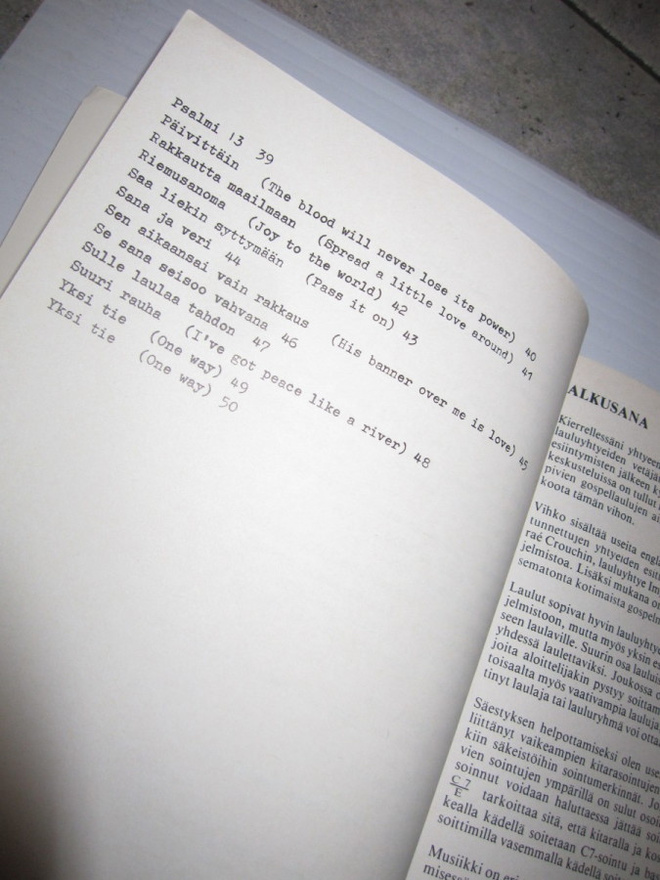 Psalmi 13 39
Päivittäin (The blood will never lose its power) 40
Rakkautta maailmaan (Spread a little love around) 41
Riemusanoma (Joy to the world) 42
Saa liekin syttymään (Pass it on) 43
Sana ja veri 44
Sen aikaansai vain rakkaus (His banner over me is love) 45
Se sana seisoo vahvana 46
Sulle laulaa tahdon 47
Suuri rauha (I've got peace like a river) 48
Yksi tie (One way) 49
Yksi tie (One way) 50
ALKUSANA
Kierrellessäni
lauluyhtyeiden
esiintymisten jälkeen
keskusteluissa on tullut
pivien gospellaulujen
koota tämän vihon.
Vihko sisältää useita
tunnettujen yhtyeiden
raé Crouchin, lauluyhtye
jelmistoa. Lisäksi mukana
sematonta kotimaista
Laulut sopivat hyvin
jelmistoon, mutta myös yksin
seen laulaville. Suurin osa
yhdessä laulettaviksi. Joukossa
joita aloittelijakin pystyy
toisaalta myös vaativampia
tinyt laulaja tai lauluryhmä voi
Säestyksen helpottamiseksi olen
liittänyt vaikeampien
kiin säkeistöihin sointumerkinnät.
vien sointujen ympärillä on sulut
soinnut voidaan haluttaessa jättää
C 7
E tarkoittaa sitä, että kitaralla ja
kealla kädellä soitetaan C7-sointu ja
soittimilla vasemmalla kädellä
Musiikki on